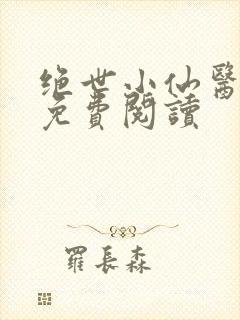 绝世小仙醫
免費閱讀
羅長森